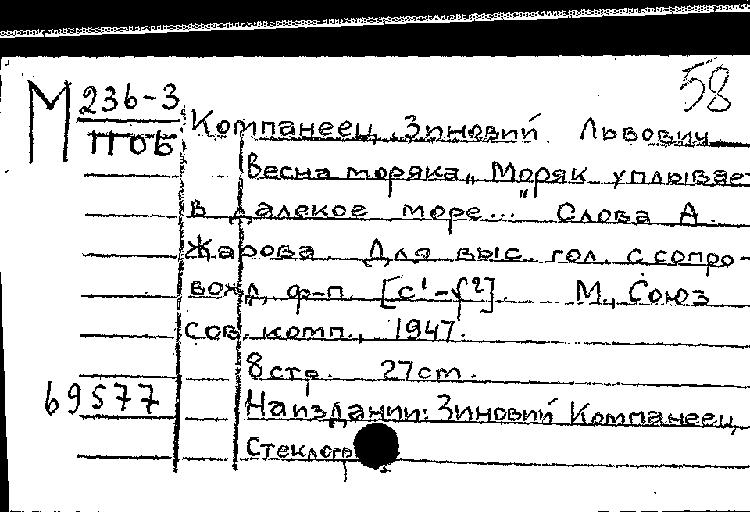 58
М 236-3
ПОВ
Компанеец, Зиновий Львович
Весна моряка „Моряк уплывае
в далекое море..." Слова А.
Жарова Для выс. гол. с сопро-
вожд. ф-п. [c¹-f²]. М., Союз
сов. комп., 1947.
8 стр. 27 cm.
69577
На издании: Зиновий Компанеец,
Стеклогр